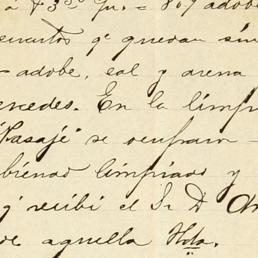 á 73 = 809 adobe
cuartos qe. quedan sin
- adobe, cal y arena
ercedes. En la limpi
"Pasaje" se ocuparon -
biendo limpiado y
qe. recibi el Sr. D
de aquella Hda.